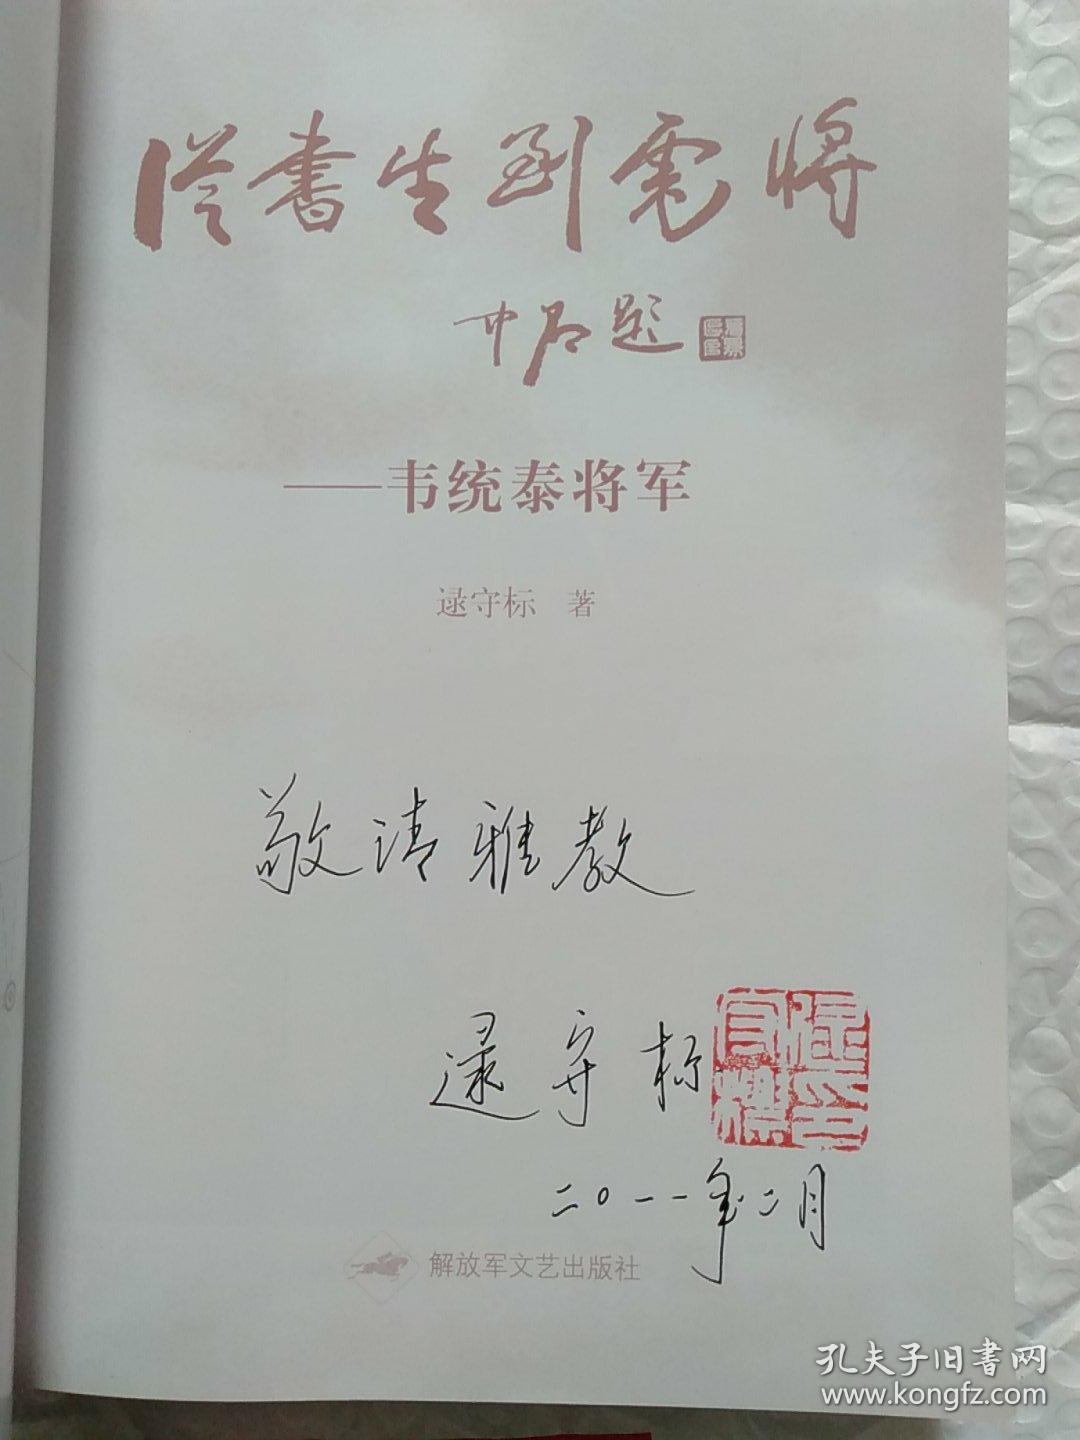 从書生到虎将
题
——韦统泰将军
逯守标 著
敬请雅教
逯守标
二〇一一年二月
解放军文艺出版社
孔夫子旧书网
www.kongfz.com